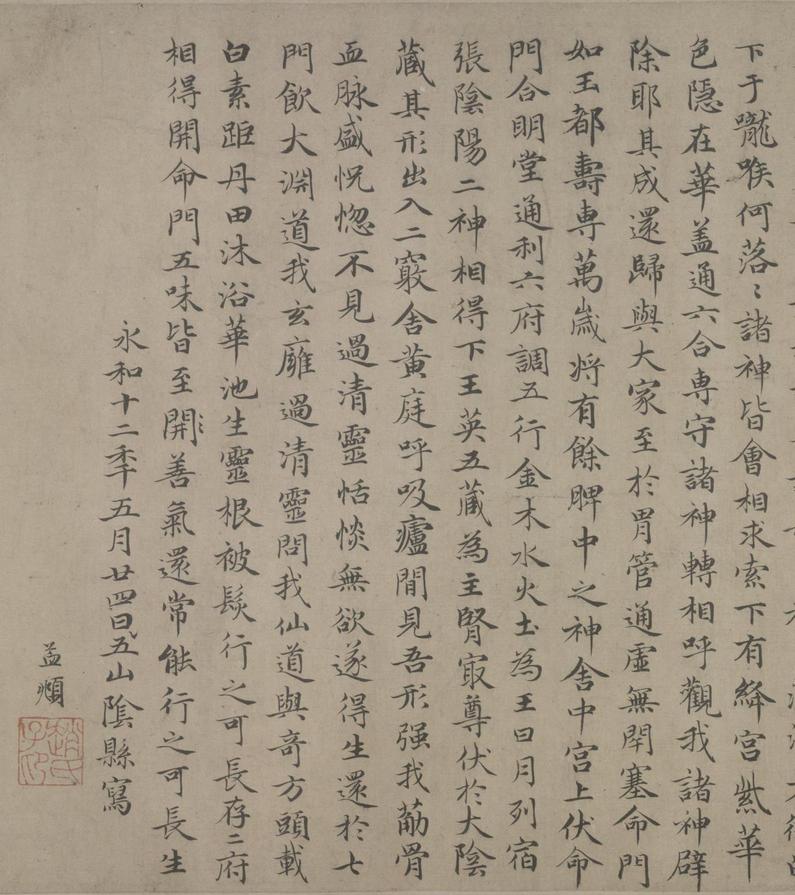 下于嚨喉何落〻諸神皆會相求索下有絳宮紫華
色隱在華盖通六合専守諸神轉相呼觀我諸神辟
除耶其成還歸與大家至於胃管通虛無閉塞命門
如玉都壽専萬歲将有餘脾中之神舍中宮上伏命
門合眀堂通利六府調五行金木水火土為王日月列宿
張陰陽二神相得下玉英五藏為主腎㝡尊伏於大陰
藏其形出入二竅舍黄庭呼吸廬間見吾形强我筋骨
血脉盛恍惚不見過清靈恬惔無欲遂得生還於七
門飲大淵道我玄廱過清靈問我仙道與奇方頭載
白素距丹田沐浴華池生靈根被髮行之可長存二府
相得開命門五味皆至開〻善氣還常能行之可長生
永和十二年五月廿四日五山陰縣寫
孟頫
趙氏子昂